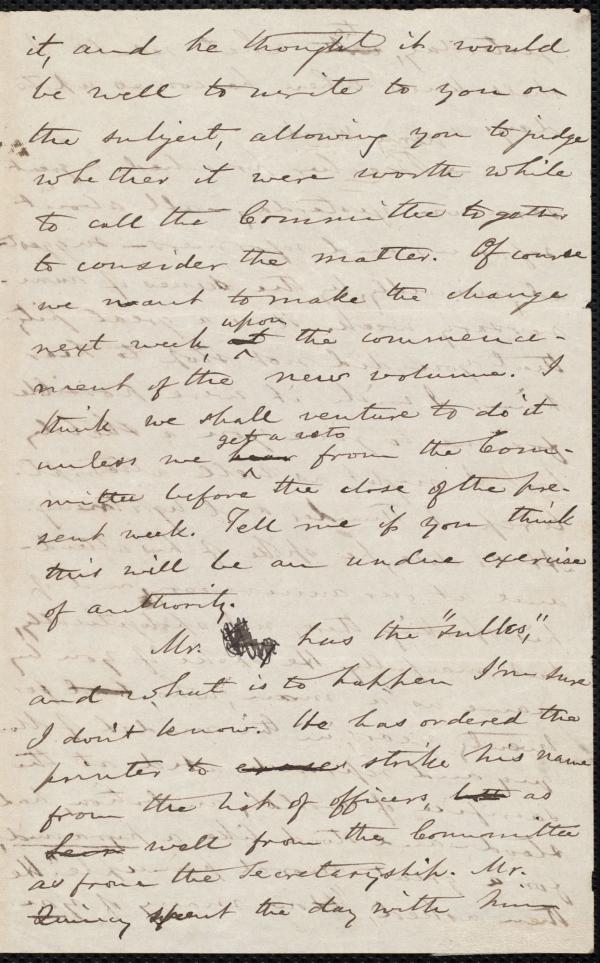 it, and he thought it would
be well to write to you on
the subject, allowing you to judge
whether it were worth while
to call the Committee together
to consider the matter. Of course
we want to make the change
next week, upon the commence-
ment of the new volume. I
think we shall venture to do it
unless we get a veto from the Com-
mittee before the close of the pre-
sent week. Tell me if you think
this will be an undue exercise
of authority.
Mr. has the "sulks,"
and what is to happen I'm sure
I don't know. He has ordered the
printer to erase strike his name
from the list of officers, as
well from the Committee
as from the Secretaryship. Mr.
Quincy spent the day with him